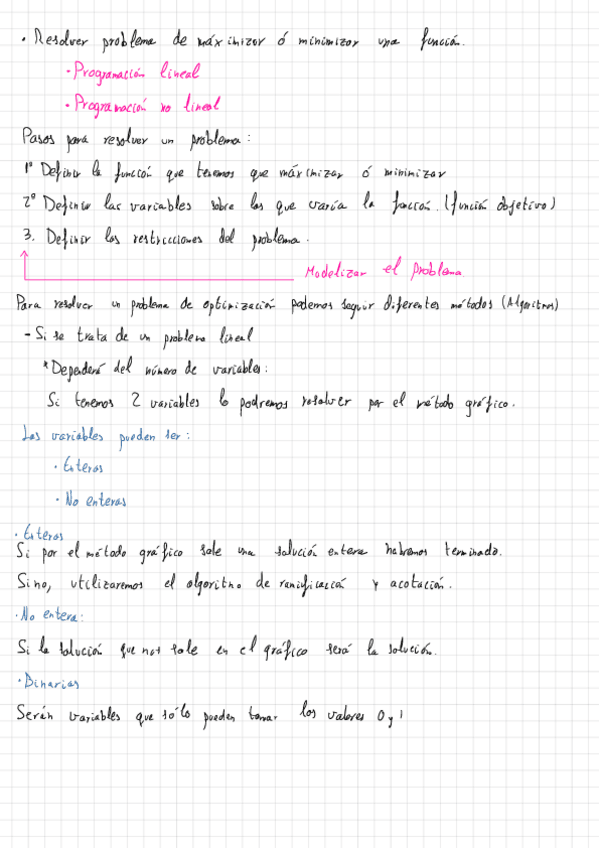 · Resolver problema de máximizar ó minimizar una función.
· Programación lineal
· Programación no lineal
Pasos para resolver un problema:
1º Definir la función que tenemos que máximizar ó minimizar
2º Definir las variables sobre las que varía la función. (función objetivo)
3. Definir las restricciones del problema.
Modelizar el problema
Para resolver un problema de optimización podemos seguir diferentes métodos (Algoritmos)
- Si se trata de un problema lineal
* Dependerá del número de variables:
Si tenemos 2 variables lo podremos resolver por el método gráfico.
Las variables pueden ser:
· Enteras
· No enteras
· Enteras
Si por el método gráfico sale una solución entera habremos terminado.
Sino, utilizaremos el algoritmo de ramificación y acotación.
· No entera:
Si la solución que nos sale en el gráfico será la solución.
· Binarias
Serán variables que sólo pueden tomar los valores 0 y 1